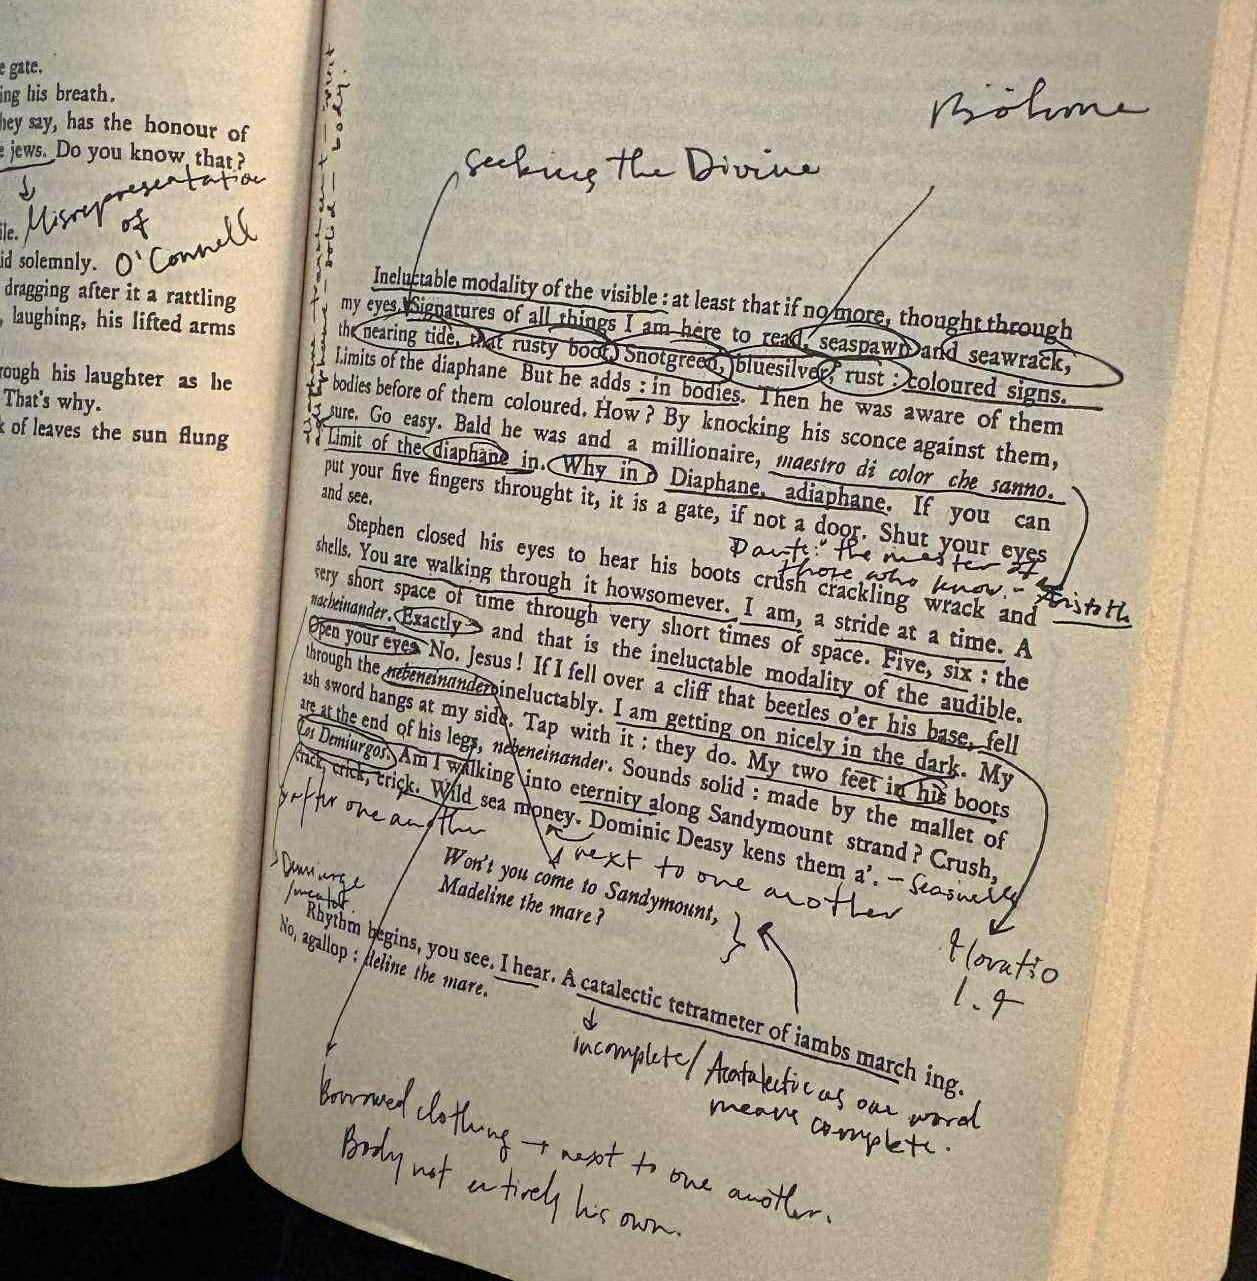 e gate.
ing his breath.
hey say, has the honour of
e jews. Do you know that?
Misrepresentation
of
O'Connell
ile.
id solemnly.
dragging after it a rattling
, laughing, his lifted arms
rough his laughter as he
That's why.
k of leaves the sun flung
Böhme
seeking the Divine
Ineluctable modality of the visible : at least that if no more, thought through
my eyes. Signatures of all things I am here to read, seaspawn and seawrack,
the nearing tide, that rusty boot. Snotgreen, bluesilver, rust : coloured signs.
Limits of the diaphane But he adds : in bodies. Then he was aware of them
bodies before of them coloured. How ? By knocking his sconce against them,
sure. Go easy. Bald he was and a millionaire, maestro di color che sanno.
Limit of the diaphane in. Why in ? Diaphane, adiaphane. If you can
put your five fingers throught it, it is a gate, if not a door. Shut your eyes
and see.
Dante: "the master of
those who know" - Aristotle
Stephen closed his eyes to hear his boots crush crackling wrack and
shells. You are walking through it howsomever. I am, a stride at a time. A
very short space of time through very short times of space. Five, six : the
nacheinander. Exactly : and that is the ineluctable modality of the audible.
Open your eyes. No. Jesus ! If I fell over a cliff that beetles o'er his base, fell
through the nebeneinander ineluctably. I am getting on nicely in the dark. My
ash sword hangs at my side. Tap with it : they do. My two feet in his boots
are at the end of his legs, nebeneinander. Sounds solid : made by the mallet of
Los Demiurgos. Am I walking into eternity along Sandymount strand ? Crush,
crack, crick, crick. Wild sea money. Dominic Deasy kens them a'.
after one another
next to one another
Demiurge
Won't you come to Sandymount,
Madeline the mare ?
Horatio
1.4
Rhythm begins, you see. I hear. A catalectic tetrameter of iambs march ing.
No, agallop : deline the mare.
incomplete/ Acatalectic as one word
means complete.
Borrowed clothing → next to one another.
Body not entirely his own.